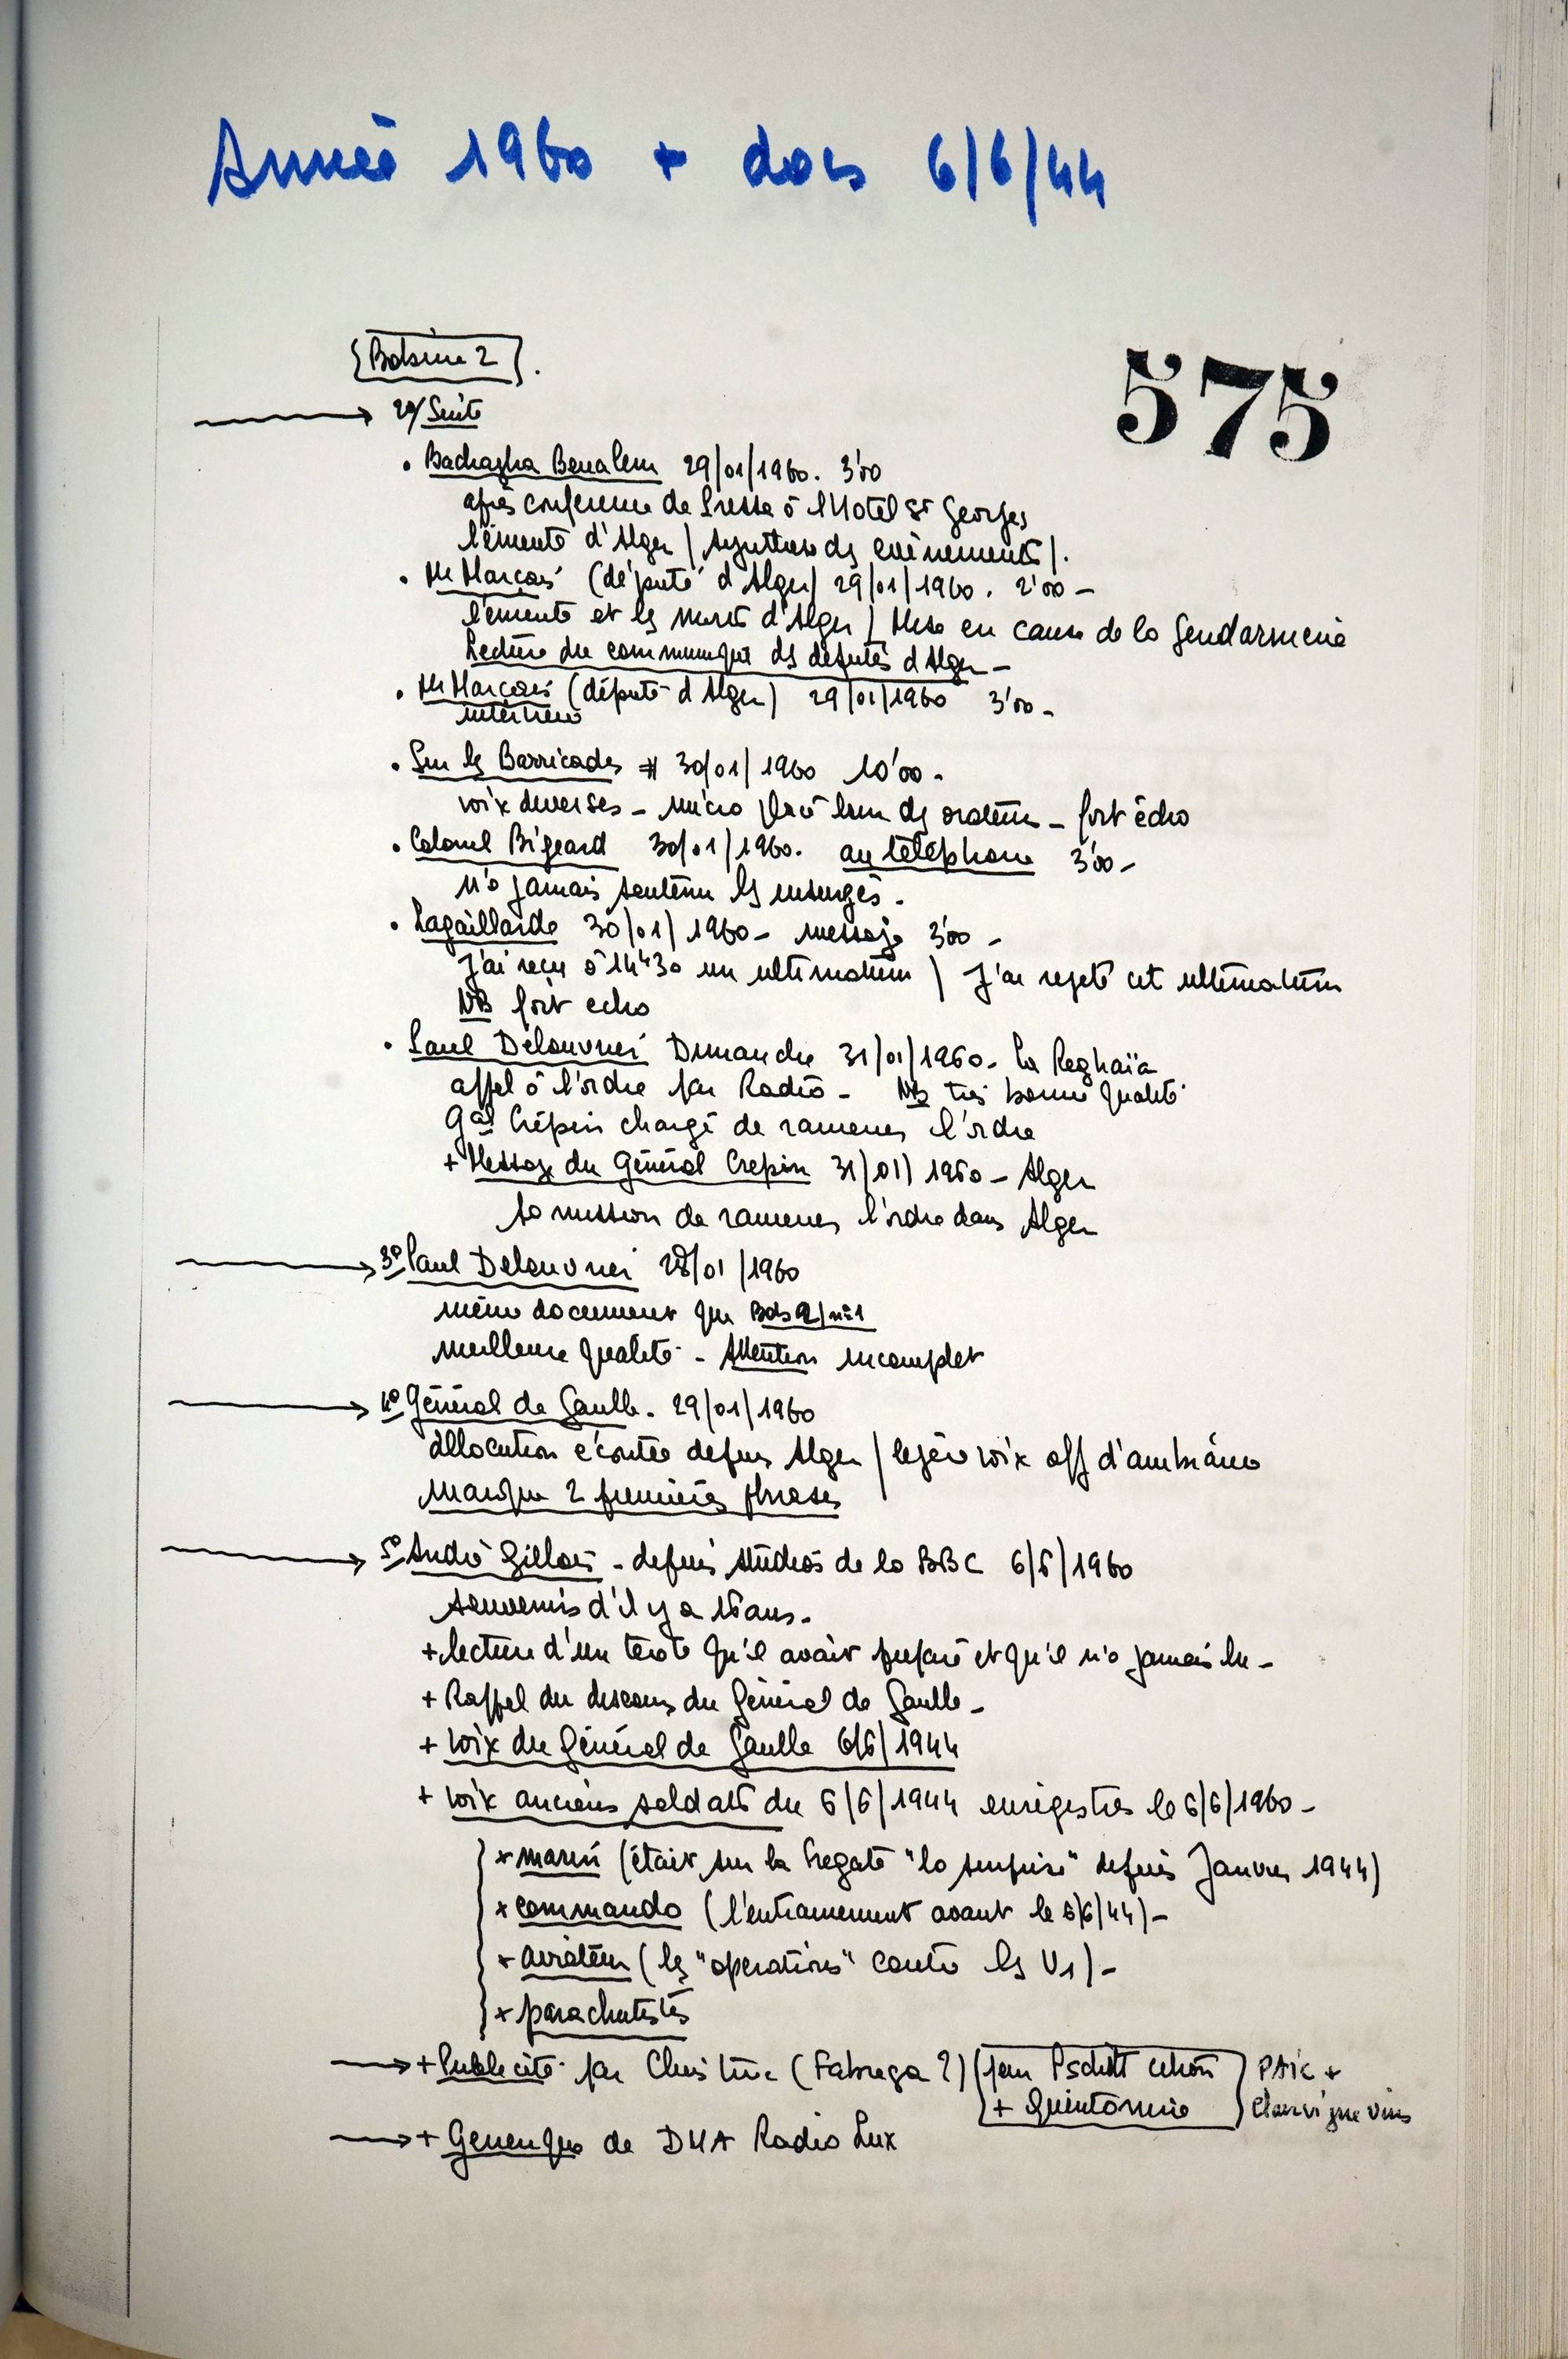 Année 1960 + docs 6/6/44
Bobine 2.
575
2°/ Suite
• Bachagha Benalem 29/01/1960. 3'00
après conférence de Presse à l'Hotel St Georges
l'émeute d'Alger / synthèse des evènements/.
• Me Marçais (député d'Alger) 29/01/1960. 2'00 -
l'émeute et les morts d'Alger / Mise en cause de la Gendarmerie
Lecture du communiqué des députés d'Alger -
• Me Marçais (député d'Alger) 29/01/1960 3'00 -
interview
• Sur les Barricades # 30/01/1960 10'00 -
voix diverses - micro placé loin des orateurs - fort écho
• Colonel Bigeard 30/01/1960. au téléphone 3'00 -
n'a jamais soutenu les insurgés -
• Lagaillarde 30/01/1960 - message 3'00 -
J'ai reçu à 14h30 un ultimatum / J'ai rejeté cet ultimatum
NB fort echo
• Paul Delouvrier Dimanche 31/01/1960 - La Reghaïa
appel à l'ordre par Radio - NB très bonne qualité
Gal Crépin chargé de ramener l'ordre
+ Message du Général Crepin 31/01/1960 - Alger
sa mission de ramener l'ordre dans Alger
3° Paul Delouvrier 28/01/1960
même document que Bob 2/n°1
meilleure qualité - Attention incomplet
4° Général de Gaulle - 29/01/1960
Allocution écoutée depuis Alger / légère voix off d'ambiance
Manque 2 premières phrases
5° André Gillois - depuis studios de la BBC 6/6/1960
souvenirs d'il y a 16 ans -
+ lecture d'un texte qu'il avait préparé et qu'il n'a jamais lu -
+ Rappel du discours du Général de Gaulle -
+ Voix du Général de Gaulle 6/6/1944
+ voix anciens soldats du 6/6/1944 enregistrés le 6/6/1960 -
* marin (était sur la fregate "la surprise" depuis Janvier 1944)
* commando (l'entrainement avant le 6/6/44) -
* aviateur (les "operations" contre les V1) -
* parachutistes
+ Publicité par Christine (Fabrega ?) (pour Pschitt citron
+ Quintonine) PAIC +
+ Generique de DMA Radio Lux